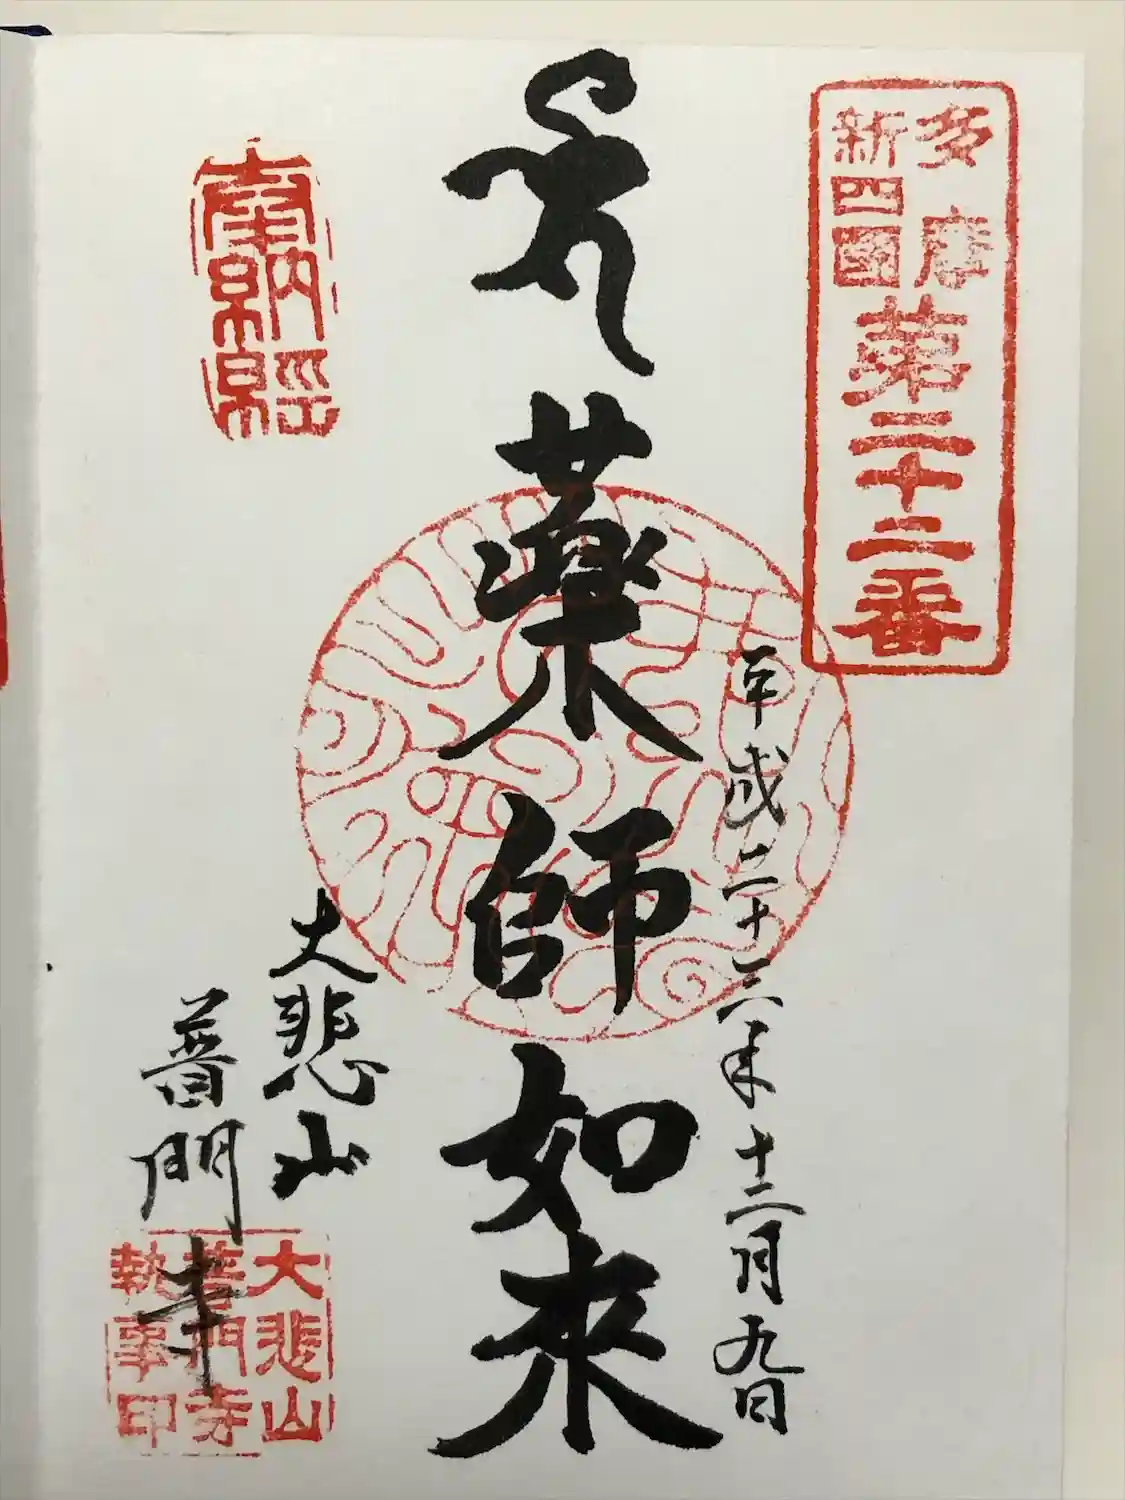 多摩
新四國
第三十二番
平成二十六年十二月九日
薬師如来
大悲山
普門寺
奉納經
大悲山
普門寺
執事印